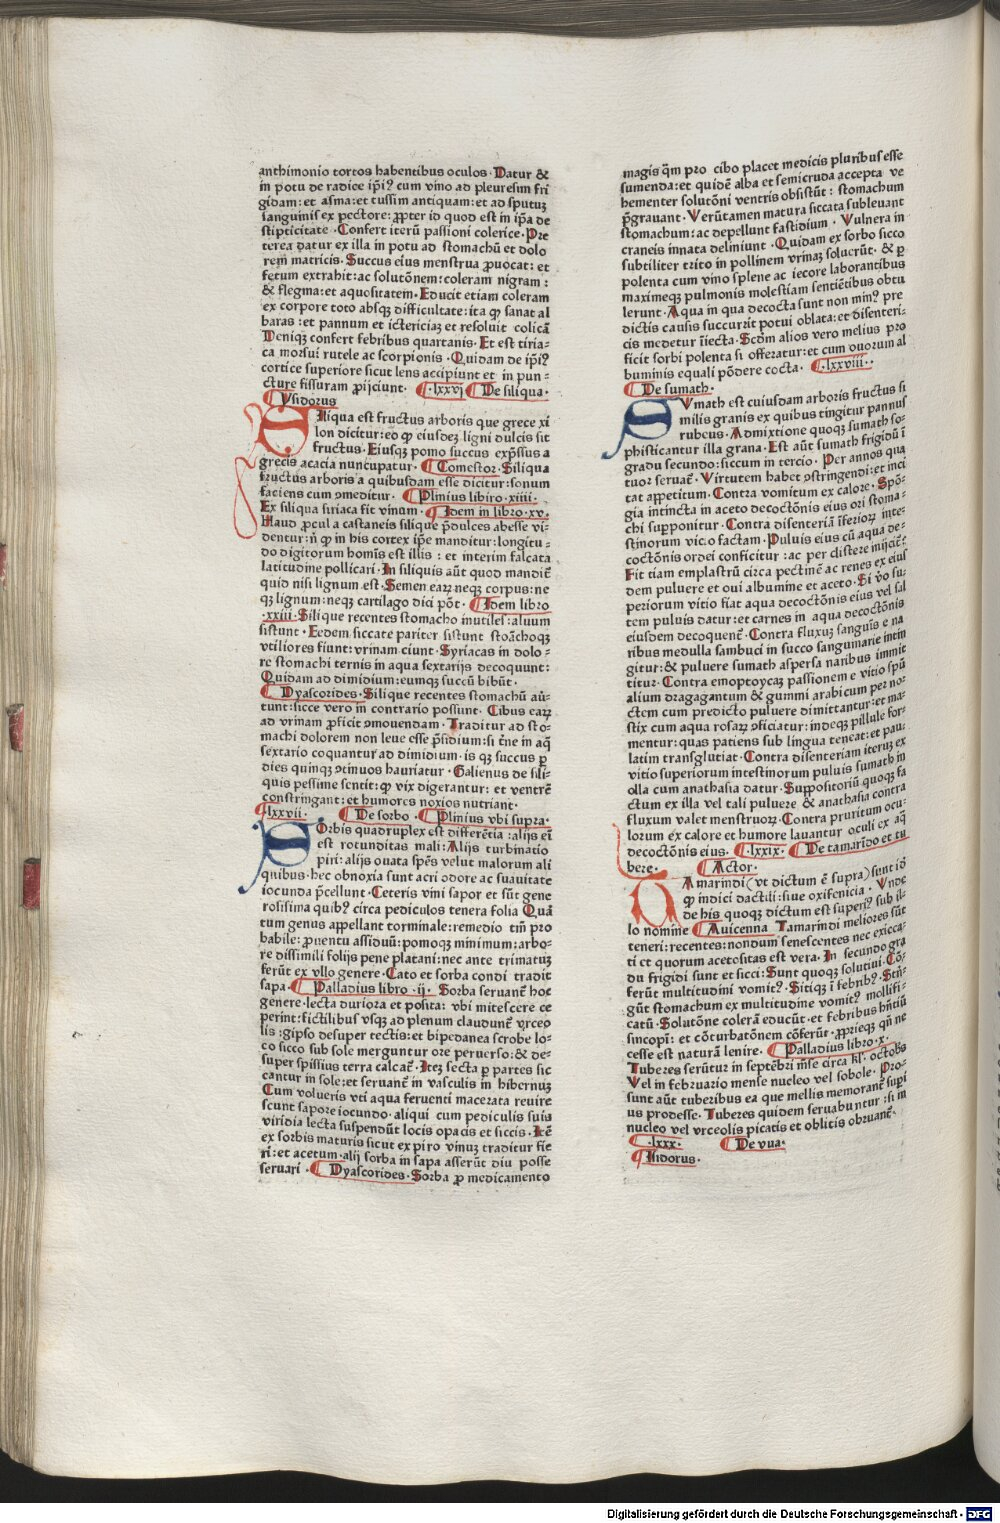 anthimonio tortos habentibus oculos · Datur &
in potu de radice ip̃iꝰ cum vino ad pleuresim fri
gidam: et asma: et tussim antiquam: et ad sputuꝫ
sanguinis ex pectore: ꝓpter id quod est in ip̃a de
stipticitate · Confert iterũ passioni colerice · Pre
terea datur ex illa in potu ad stomachũ et dolo
rem̃ matricis · Succus eius menstrua ꝓuocat: et
fetum extrahit: ac solutõnem: coleram nigram :
& flegma: et aquositatem · Educit etiam coleram
ex corpore toto absqꝫ difficultate: ita ꝙ sanat al
baras : et pannum et ictericiaꝫ et resoluit colicã
Deniqꝫ confert febribus quartanis · Et est tiria-
ca morsui rutele ac scorpionis · Quidam de ip̃iꝰ
cortice superiore sicut lens accipiunt et in pun-
cture fissuram ꝓijciunt · ·lxxvj De siliqua ·
Ysidorus
SIliqua est fructus arboris que grece xi
lon dicitur: eo ꝙ eiusdeꝫ ligni dulcis sit
fructus · Eiusqꝫ pomo succus exp̃ssus a
grecis acacia nuncupatur · Comestor · Siliqua
fructus arboris a quibusdam esse dicitur: sonum
faciens cum ꝯmeditur · Plinius libiro · xiiii ·
Ex siliqua siriaca fit vinum · Idem in libro · xv ·
Haud ꝓcul a castaneis silique p̃dulces abesse vi-
dentur: ñ ꝙ in his cortex ip̃e manditur: longitu-
do digitorum homĩs est illis : et interim falcata
latitudine pollicari · In siliquis aũt quod mandit̃
quid nisi lignum est · Semen eaꝝ neqꝫ corpus: ne
qꝫ lignum: neqꝫ cartilago dici põt · Idem libro
·xxiii · Silique recentes stomacho inutiles: aluum
sistunt · Eedem siccate pariter sistunt stoãchoqꝫ
vtiliores fiunt: vrinam ciunt · Syriacas in dolo-
re stomachi ternis in aqua sextarijs decoquunt:
Quidam ad dimidium: eumqꝫ succũ bibũt ·
Dyascorides · Silique recentes stomachũ aũ-
tunt: sicce vero in contrario possunt · Cibus eaꝝ
ad vrinam ꝓficit ꝯmouendam · Traditur ad sto-
machi dolorem non leue esse p̃sidium: si t̃ne in aq̃
sextario coquantur ad dimidium · is qꝫ succus ꝑ
dies quinqꝫ ꝯtinuos hauriatur · Galienus de sili-
quis pessime sentit: ꝙ vix digerantur: et ventrẽ
constringant: et humores noxios nutriant ·
·lxxvii · De sorbo · Plinius vbi supra ·
SOrbis quadruplex est differẽtia: alijs eĩ
est rotunditas mali: Alijs turbinatio
piri: alijs ouata sp̃es velut malorum ali
quibus · hec obnoxia sunt acri odore ac suauitate
iocunda p̃cellunt · Ceteris vini sapor et sũt gene
rosissima quibꝰ circa pediculos tenera folia Quã
tum genus appellant torminale: remedio tm̃ pro
babile: ꝓuentu assiduũ: pomoqꝫ minimum: arbo-
re dissimili folijs pene platani: nec ante trimatuꝫ
ferũt ex vllo genere · Cato et sorba condi tradit
sapa · Palladius libro · ij · Sorba seruant̃ hoc
genere · lecta duriora et posita : vbi mitescere ce
perint: fictilibus vsqꝫ ad plenum claudunt̃ vrceo
lis : gipso desuper tectis: et bipedanea scrobe lo-
co sicco sub sole merguntur ore peruerso: & de-
super spissius terra calcat̃ · Iteꝫ secta ꝑ partes sic
cantur in sole: et seruant̃ in vasculis in hibernuꝫ
Cum volueris vti aqua feruenti macerata reuire
scunt sapore iocundo · aliqui cum pediculis suis
viridia lecta suspendũt locis opacis et siccis · Itẽ
ex sorbis maturis sicut ex piro vinuꝫ traditur fie
ri: et acetum · alij sorba in sapa asserũt diu posse
seruari · Dyascorides · Sorba ꝓ medicamento
magis q̃m pro cibo placet medicis pluribus esse
sumenda: et quidẽ alba et semicruda accepta ve
hementer solutõni ventris obsistũt : stomachum
p̃grauant · Verũtamen matura siccata subleuant
stomachum: ac depellunt fastidium · Vulnera in
craneis innata deliniunt · Quidam ex sorbo sicco
subtiliter trito in pollinem vrinaꝫ soluerũt · & ꝑ
polenta cum vino splene ac iecore laborantibus
maximeqꝫ pulmonis molestiam sentiẽtibus obtu
lerunt · Aqua in qua decocta sunt non minꝰ pre
dictis causis succurrit potui oblata: et disenteri-
cis medetur ĩiecta · Scd̃m alios vero melius pro
ficit sorbi polenta si offeratur: et cum ouorum al
buminis equali põdere cocta · ·lxxviii ·
De sumath ·
SVmath est cuiusdam arboris fructus si
milis granis ex quibus tingitur pannus
rubeus · Admixtione quoqꝫ sumath so-
phisticantur illa grana · Est aũt sumath frigidũ ĩ
gradu secundo: siccum in tercio · Per annos qua
tuor seruat̃ · Virtutem habet ꝯstringendi: et inci
tat appetitum · Contra vomitum ex calore · Spõ-
gia intincta in aceto decoctõnis eius ori stoma-
chi supponitur · Contra disenteriã ĩferioꝝ inte-
stinorum vicio factam · Puluis eius cũ aqua de-
coctõnis ordei conficitur : ac per clistere inijcit̃:
Fit tiam emplastrũ circa pectinẽ ac renes ex eius
dem puluere et oui albumine et aceto · Si ṽo su-
periorum vitio fiat aqua decoctõnis eius vel sal
tem puluis datur: et carnes in aqua decoctõnis
eiusdem decoquent̃ · Contra fluxuꝫ sanguĩs e na
ribus medulla sambuci in succo sanguinarie intin
gitur: & puluere sumath aspersa naribus immit
titur · Contra emoptoycaꝫ passionem e vitio spũ
alium dragagantum & gummi arabicum per no-
ctem cum predicto puluere dimittantur: et ma-
stix cum aqua rosaꝝ ꝯficiatur: indeqꝫ pillule for-
mentur: quas patiens sub lingua teneat: et pau-
latim transglutiat · Contra disenteriam iteruꝫ ex
vitio superiorum intestinorum puluis sumath in
olla cum anathasia datur · Suppositoriũ quoqꝫ fa
ctum ex illa vel tali puluere & anathasia contra
fluxum valet menstruoꝝ · Contra pruritum ocu-
lorum ex calore et humore lauantur oculi ex aq̃
decoctõnis eius · ·lxxix · De tamarĩdo et tu
bere · Actor ·
TAmarindi (vt dictum ẽ supra) sunt id̃
ꝙ indici dactili: siue oxifenicia · Vnde
de his quoqꝫ dictum est superiꝰ sub il-
lo nomine Auicenna Tamarindi meliores sũt
teneri: recentes: nondum senescentes nec exicca-
ti et quorum acetositas est vera · In secundo gra
du frigidi sunt et sicci: Sunt quoqꝫ solutiui · Cõ-
ferũt multitudini vomitꝰ · Sitiqꝫ ĩ febribꝰ · Strĩ-
gũt stomachum ex multitudine vomitꝰ mollifi-
catũ · Solutõne colerã educũt · et febribus hñtiũ
sincopĩ: et cõturbatõnem cõferũt · ꝓprieqꝫ qñ ne
cesse est naturã lenire · Palladius libro · x ·
Tuberes serũtur in septẽbri m̃se circa kl̃ · octobris
Vel in februario mense nucleo vel sobole · Pro-
sunt aũt tuberibus ea que mellis memorant̃ supi
us prodesse · Tuberes quidem seruabuntur : si in
nucleo vel vrceolis picatis et oblitis obruant̃ ·
·lxxx · De vua ·
Isidorus ·
Digitalisierung gefördert durch die Deutsche Forschungsgemeinschaft - DFG